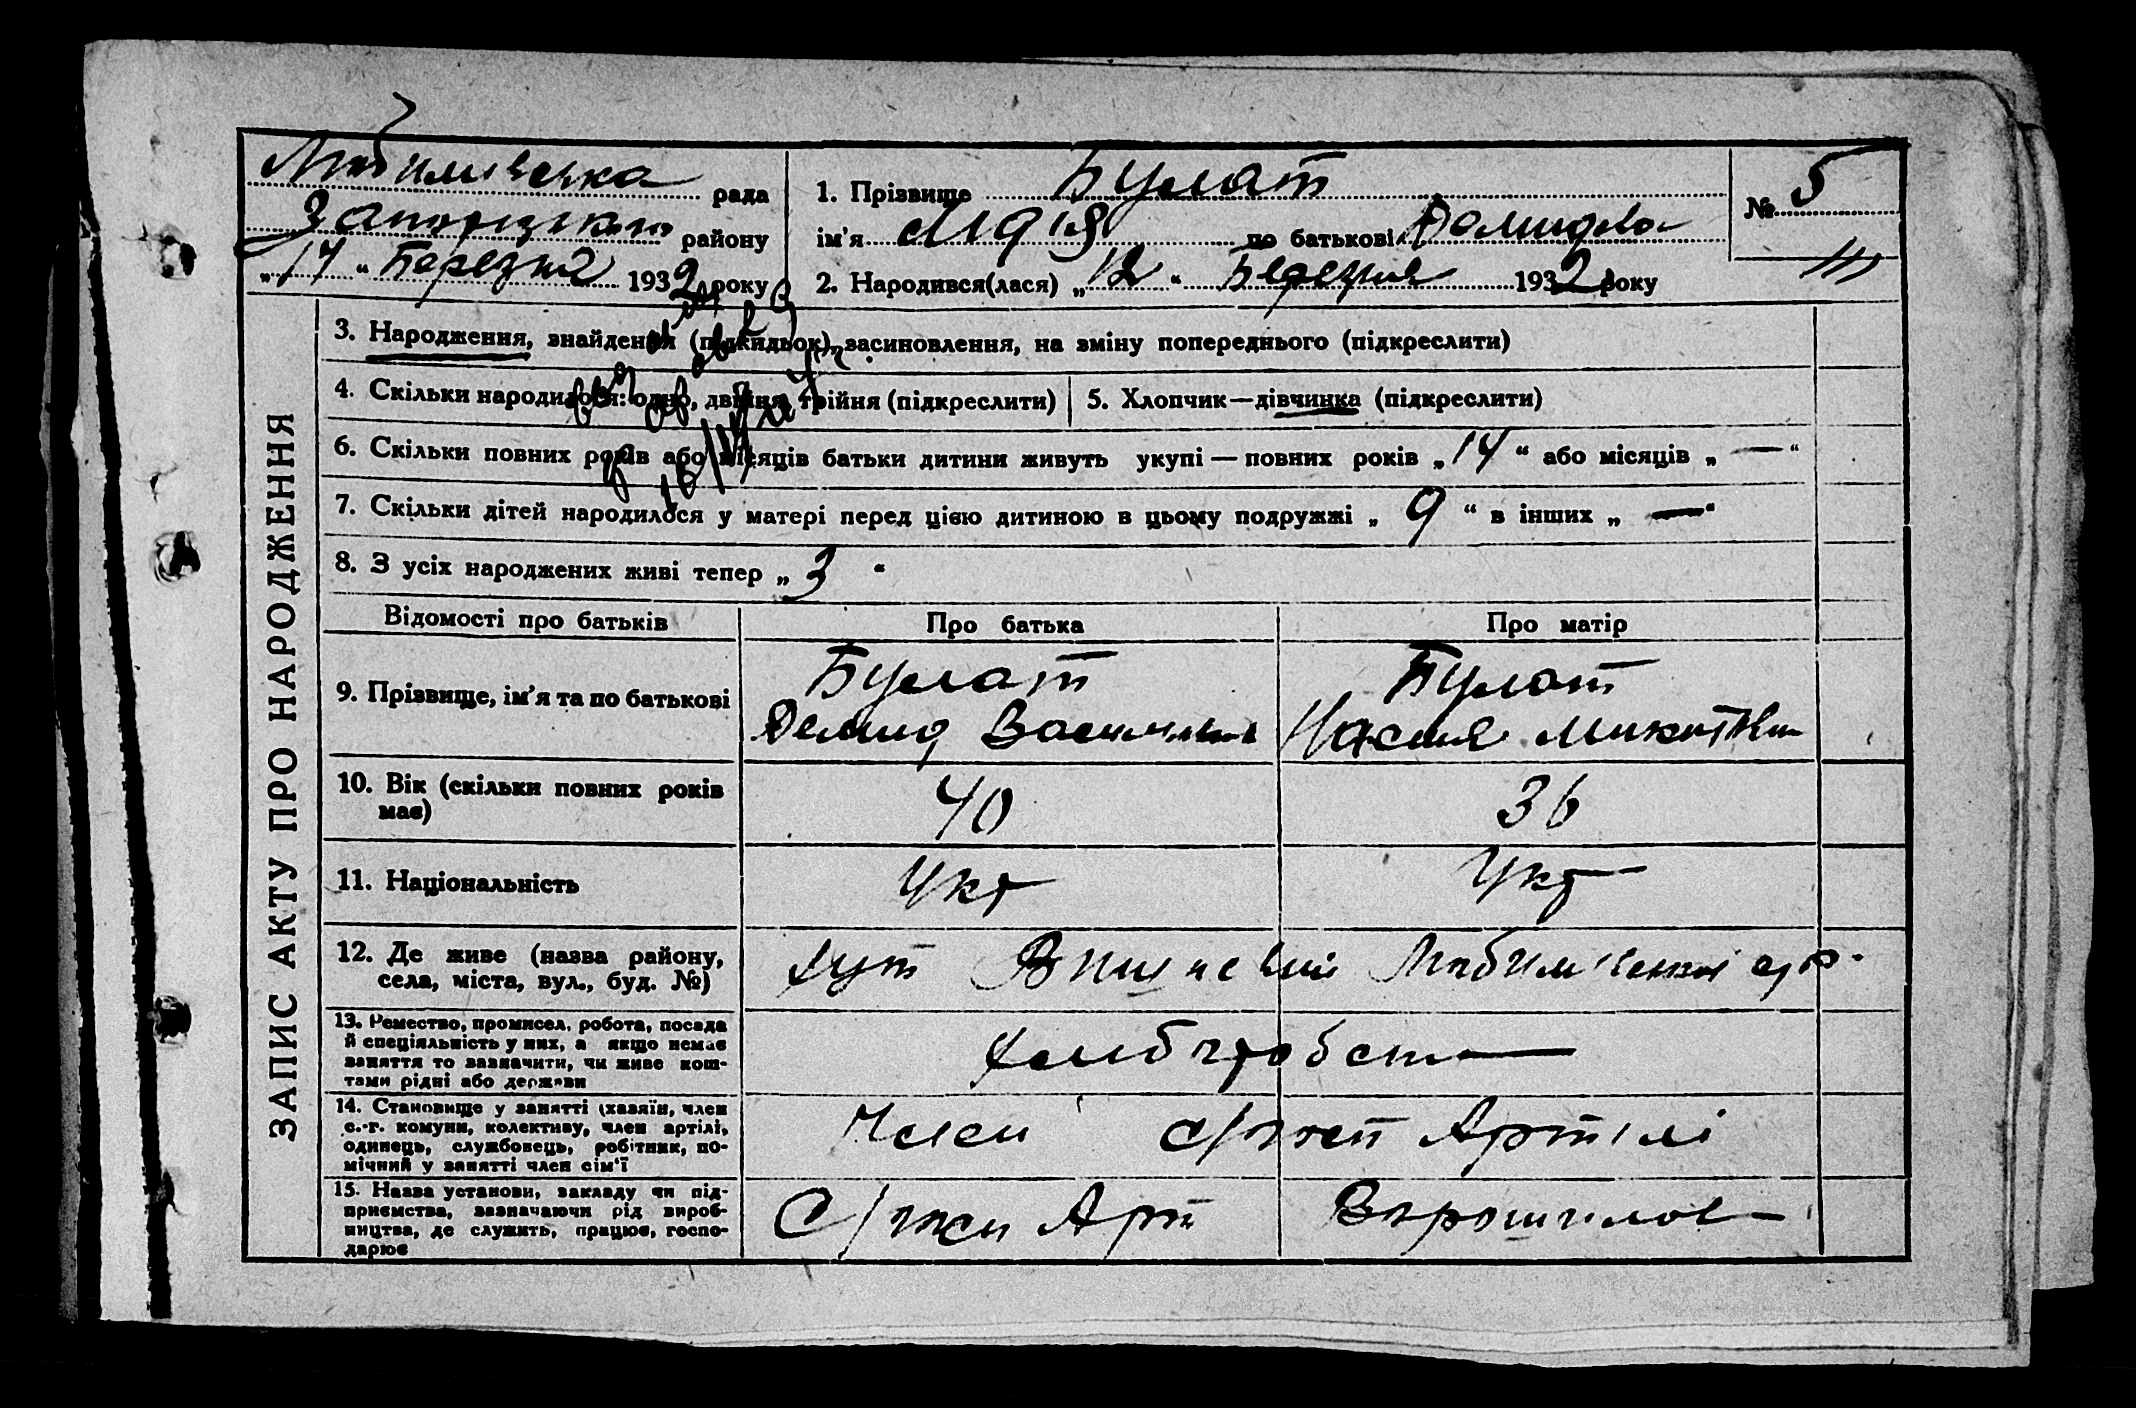 Любимівська рада
Запорізького району
„17“ Березня 1932 року
1. Прізвище Булат
ім'я Марія по батькові Демидова
2. Народився(лася) „12“ Березня 1932 року
№ 5
3. Народження, знайдення (підкидьок), засиновлення, на зміну попереднього (підкреслити)
4. Скільки народилося: одно, двійня, трійня (підкреслити)
5. Хлопчик—дівчинка (підкреслити)
6. Скільки повних років або місяців батьки дитини живуть укупі — повних років „14“ або місяців „—“
7. Скільки дітей народилося у матері перед цією дитиною в цьому подружжі „9“ в інших „—“
8. З усіх народжених живі тепер „3“
ЗАПИС АКТУ ПРО НАРОДЖЕННЯ
Відомості про батьків
Про батька
Про матір
9. Прізвище, ім'я та по батькові
Булат
Демид Васильов
Булат
Настя Микитівн
10. Вік (скільки повних років
має)
40
36
11. Національність
Укр
Укр
12. Де живе (назва району,
села, міста, вул., буд. №)
хут Вишневий Любимівської с/р.
13. Ремество, промисел, робота, посада
й спеціяльність у них, а якщо немає
заняття то зазначити, чи живе кош-
тами рідні або держави
хлібороб
14. Становище у занятті (хазяїн, член
с.-г. комуни, колективу, член артілі,
одинець, службовець, робітник, по-
мічний у занятті член сім'ї
Член Артілі
15. Назва установи, закладу чи під-
приємства, зазначаючи рід вироб-
ництва, де служить, працює, госпо-
дарює
Арт Ворошилов